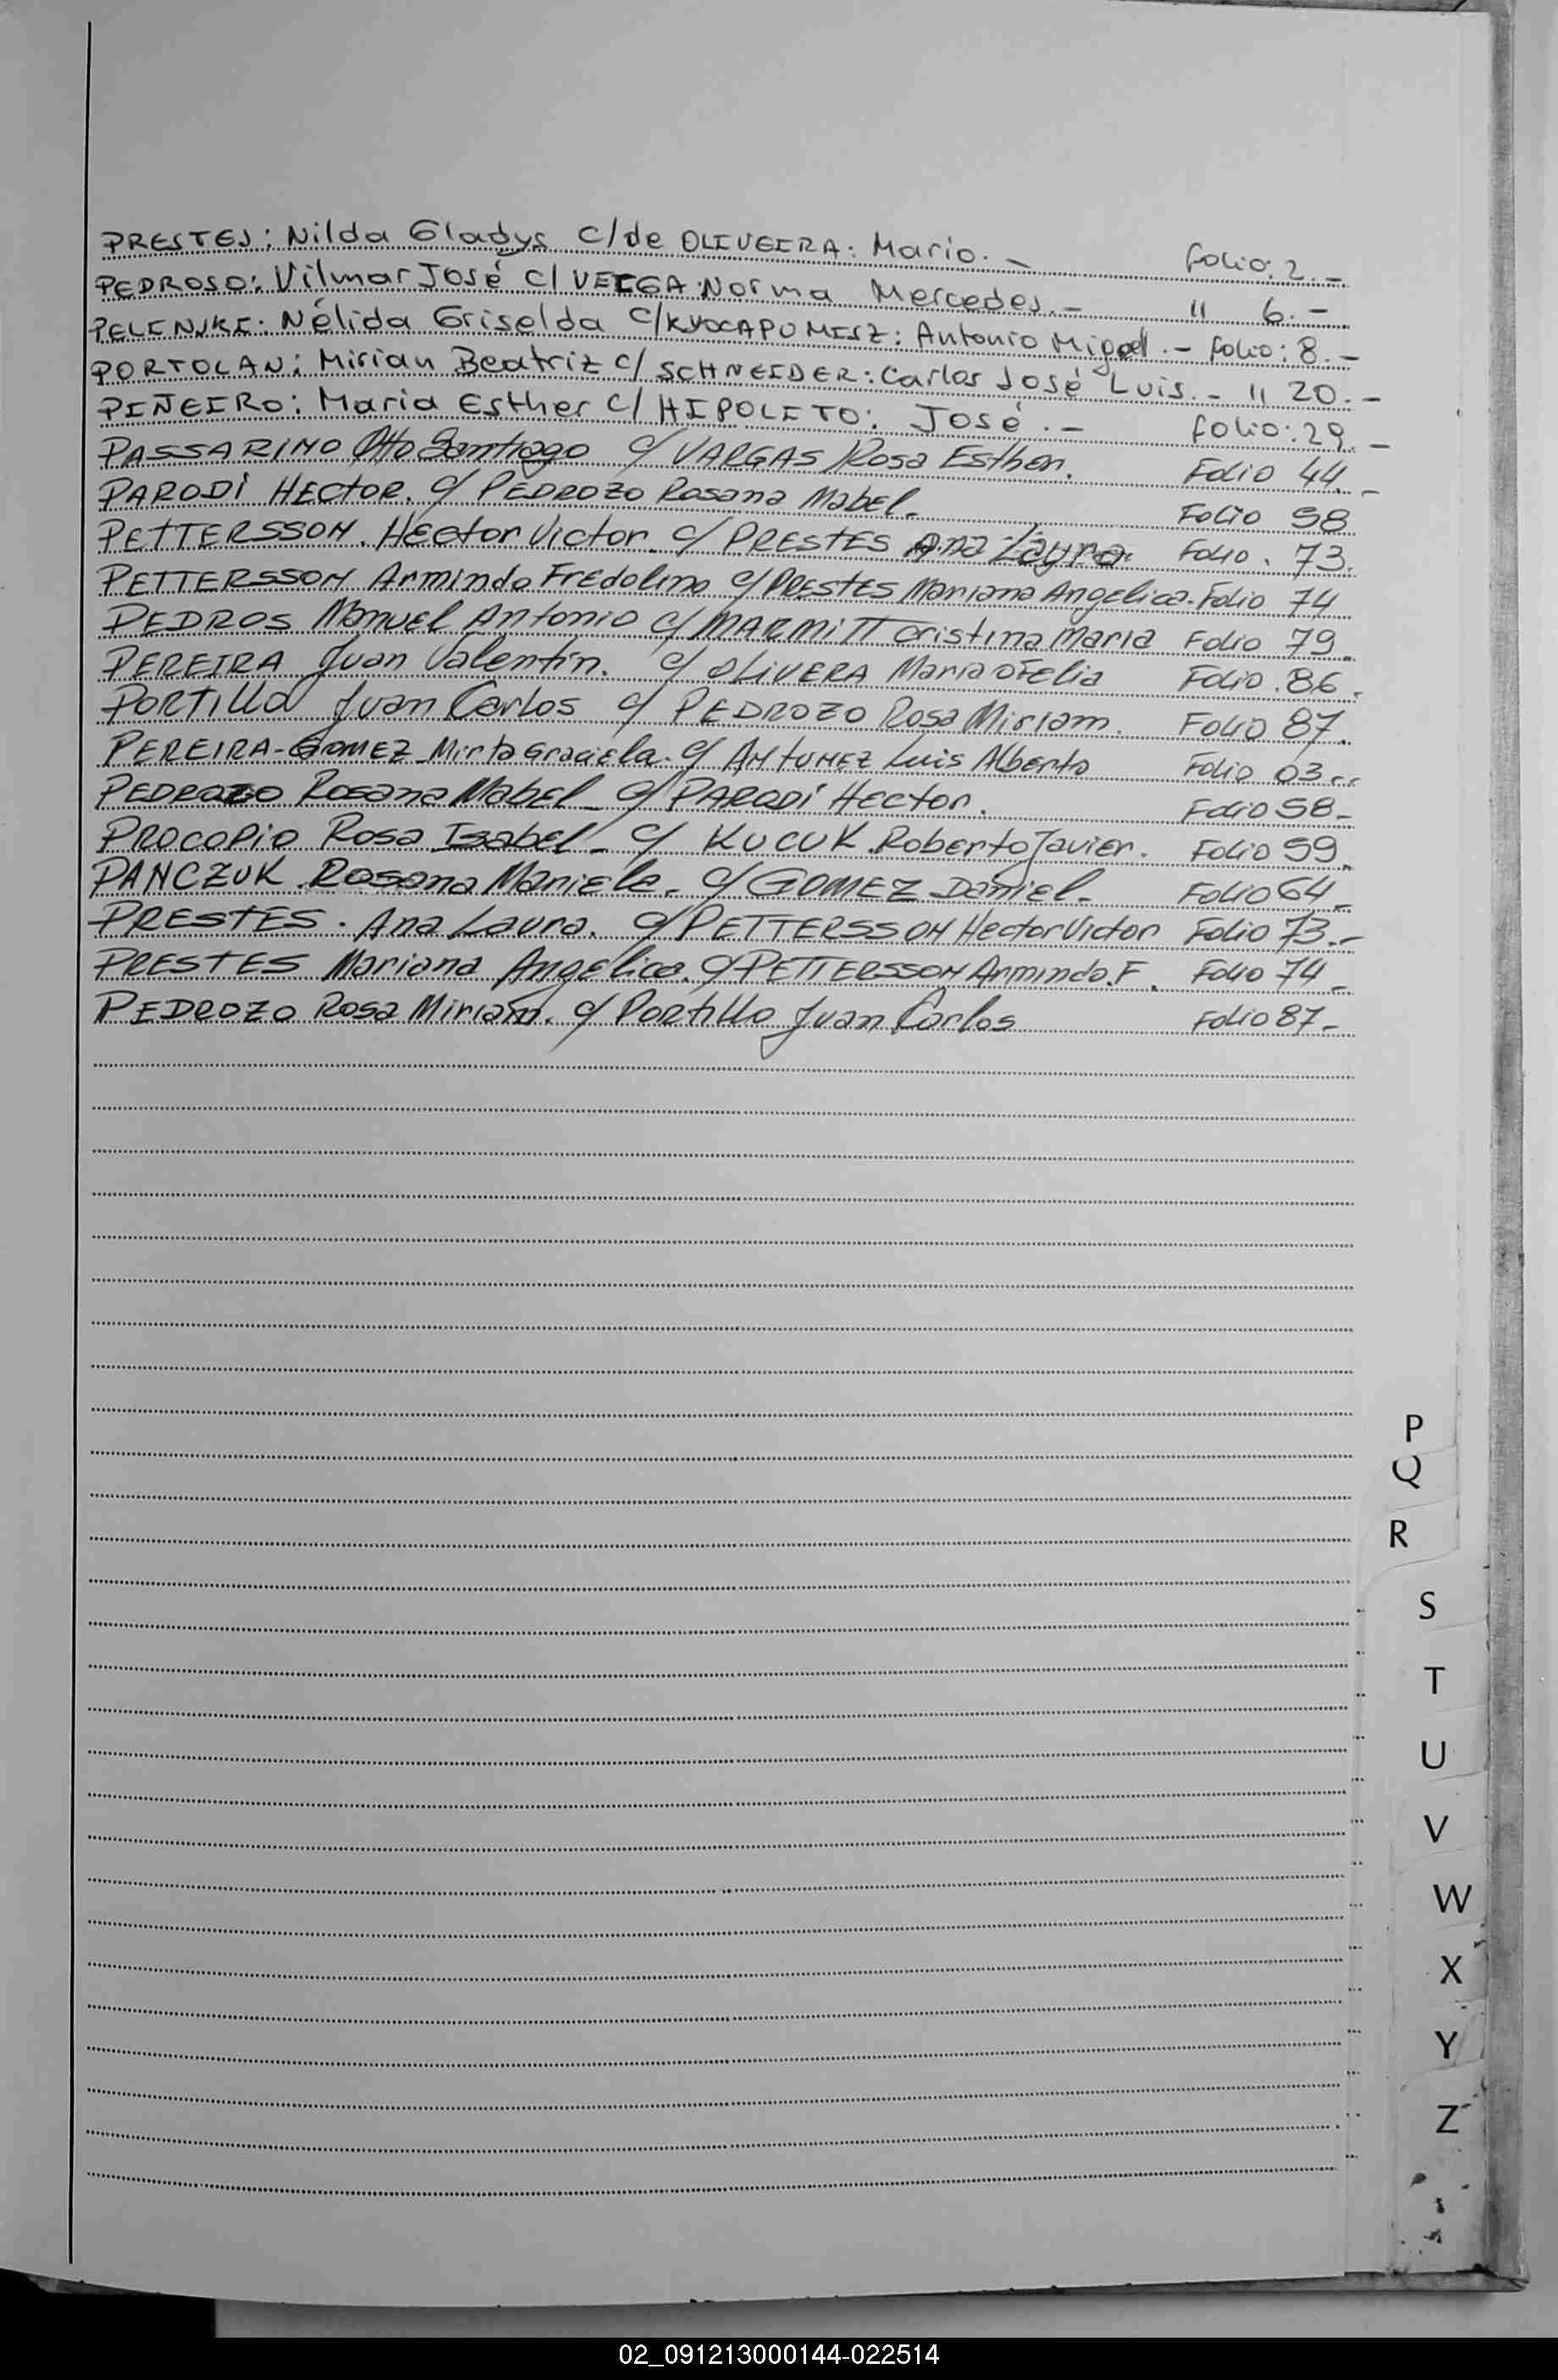 PRESTES: Nilda Gladys c/de OLIVEIRA: Mario.- folio: 2.-
PEDROSO: Vilmar José c/ VEIGA Norma Mercedes.- " 6.-
PELENJKI: Nélida Griselda c/ : Antonio Migel.- folio: 8.-
PORTOLAN: Mirian Beatriz c/ SCHNEIDER: Carlos José Luis.- " 20.-
PIÑEIRO: Maria Esther c/ HIPOLITO: José.- folio: 29.-
PASSARINO Otto Santiago c/ VARGAS Rosa Esther. Folio 44.-
PARODI HECTOR. c/ PEDROZO Rosana Mabel.- Folio 58
PETTERSSON. Hector Victor. c/ PRESTES Ana Laura. Folio. 73.
PETTERSSON Armindo Fredolino c/ PRESTES Mariana Angelica. Folio 74
PEDROS Manuel Antonio c/ MARMITT Cristina Maria Folio 79.
PEREIRA Juan Valentín. c/ OLIVERA Maria Ofelia Folio. 86.
PORTILLO Juan Carlos c/ PEDROZO Rosa Miriam. Folio 87.
PEREIRA-GOMEZ Mirta Graciela. c/ ANTUNEZ Luis Alberto Folio 03..
PEDROZO Rosana Mabel - c/ PARODI Hector. Folio 58-
PROCOPIO Rosa Isabel - c/ KUCUK Roberto Javier. Folio 59.
PANCZUK Rosana Mariela. c/ GOMEZ Daniel. Folio 64-
PRESTES. Ana Laura. c/ PETTERSSON Hector Victor Folio 73.-
PRESTES Mariana Angelica. c/ PETTERSSON Armindo. F. Folio 74-
PEDROZO Rosa Miriam. c/ Portillo Juan Carlos Folio 87-
P
Q
R
S
T
U
V
W
X
Y
Z
02_091213000144-022514